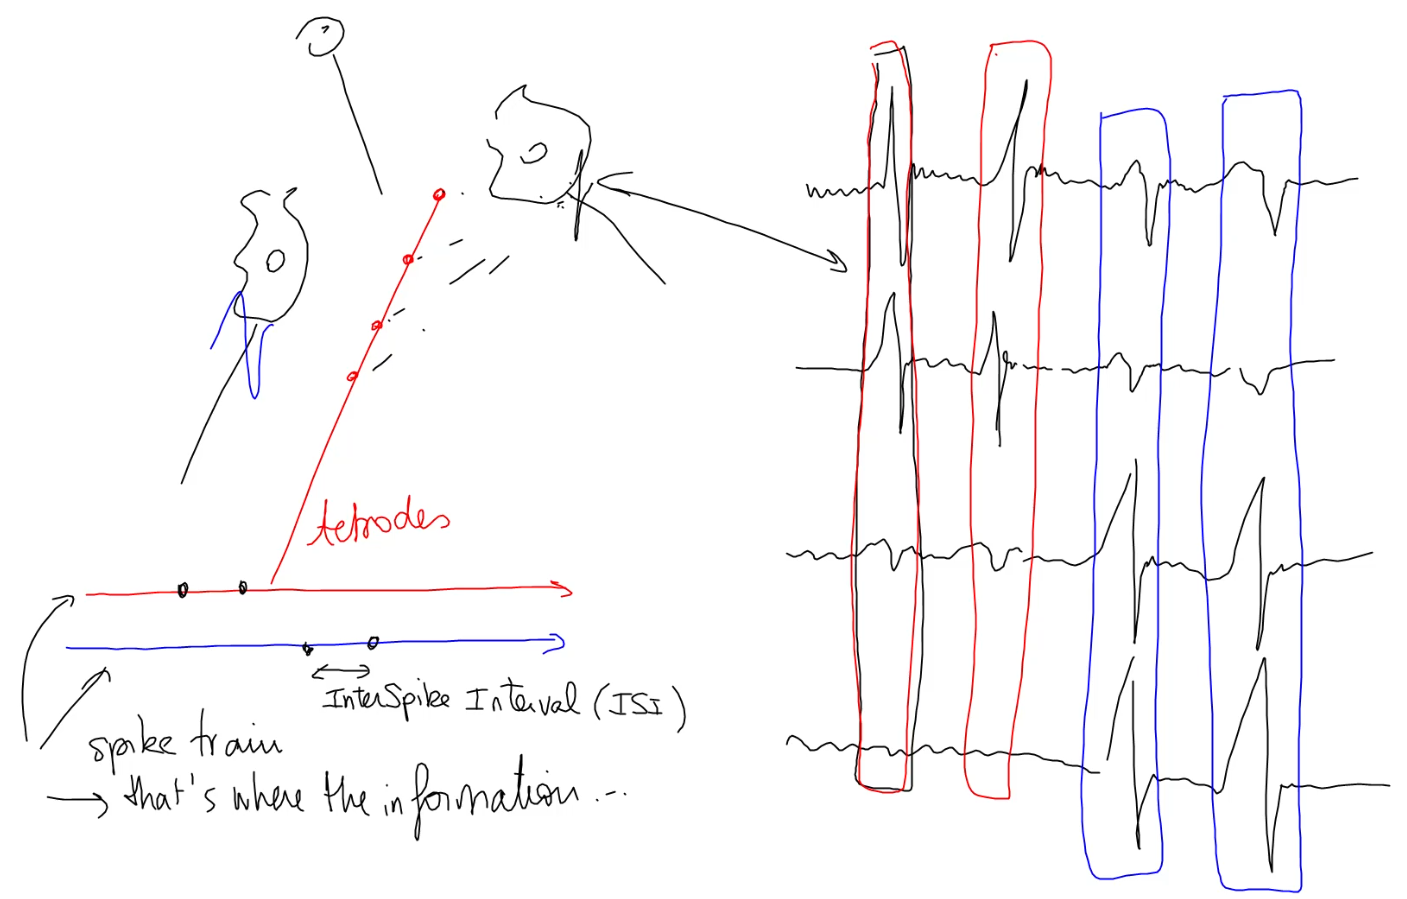 tetrodes
InterSpike Interval (ISI)
spike train
→ that's where the information...